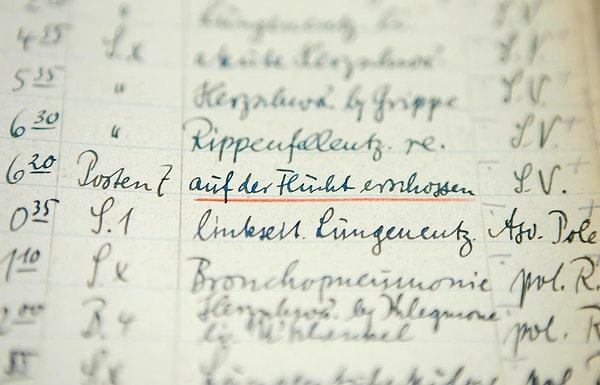 Lungenentz. S.V.
4 35 S.x akute Herzschwä. S.V.
5 35 " Herzschwä. by Grippe S.V.
6 30 " Rippenfellentz. re. S.V. +
6 20 Posten 7 auf der Flucht erschossen S.V. +
0 35 S.1 linkseit. Lungenentz. Aso. Pole
1 10 S.x Bronchopneumonie pol. R.
2 00 R 4 Herzschwä. by Phlegmone
pol. R
55 S.x